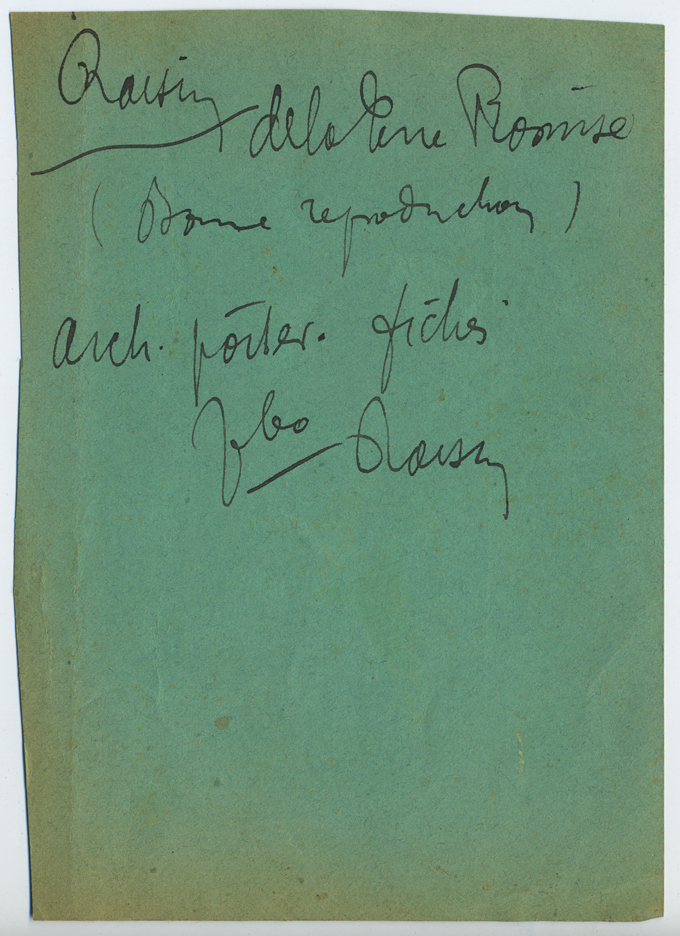 Raisin de la Terre Promise
(Bonne reproduction)
Arch. poster. fiches
Raisin